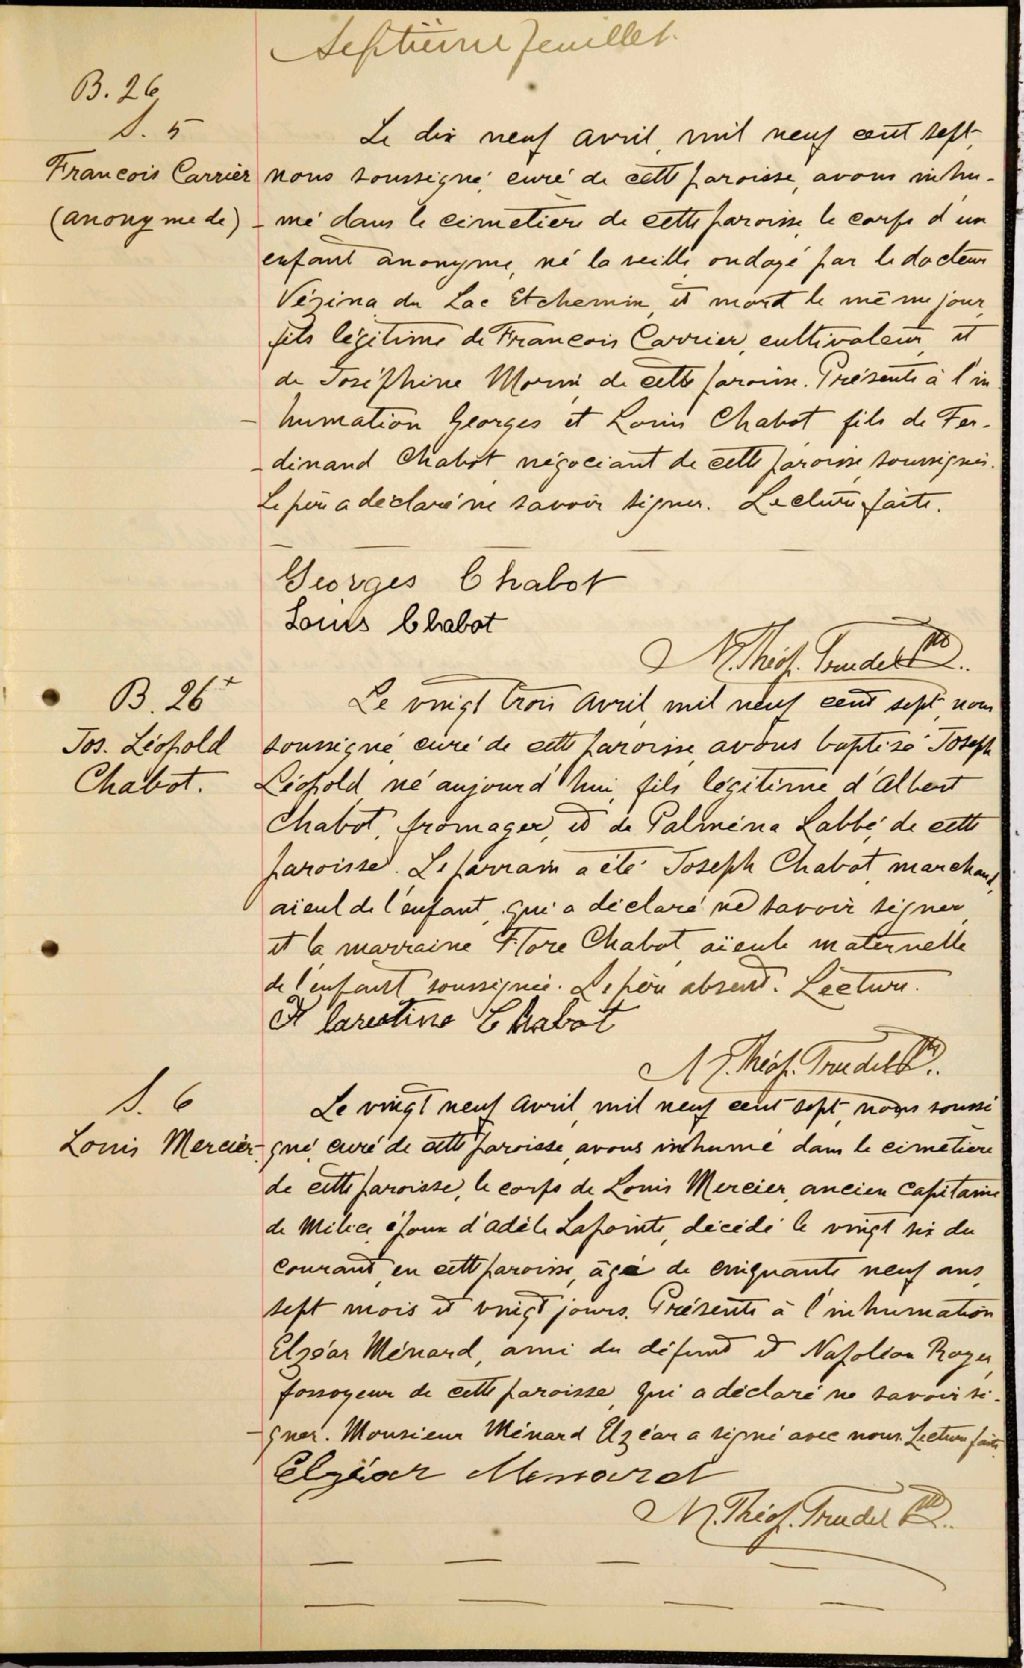 Septième feuillet.
B. 26
S. 5
Francois Carrier
(anonyme de)
Le dix neuf avril, mil neuf cent sept,
nous soussigné, curé de cette paroisse, avons inhu-
-mé dans le cimetière de cette paroisse, le corps d'un
enfant anonyme, né la veille, ondoyé par le docteur
Vézina du Lac Etchemin, et mort le même jour,
fils légitime de Francois Carrier, cultivateur, et
de Joséphine Morin, de cette paroisse. Présents à l'in
-humation Georges et Louis Chabot fils de Fer-
-dinand Chabot, négociant de cette paroisse, soussignés.
Le père a déclaré ne savoir signer. Lecture faite.
Georges Chabot
Louis Chabot
N. Théop. Trudel Ptre
B. 26+
Jos. Léopold
Chabot.
Le vingt trois avril, mil neuf cent sept, nous
soussigné, curé de cette paroisse, avons baptisé Joseph
Léopold, né aujourd'hui, fils légitime d'Albert
Chabot, fromager, et de Palména Labbé, de cette
paroisse. Le parrain a été Joseph Chabot, marchand,
aïeul de l'enfant, qui a déclaré ne savoir signer,
et la marraine Flore Chabot, aïeule maternelle
de l'enfant soussignée. Le père absent. Lecture.
Chabot
N. Théop. Trudel Ptre
S. 6
Louis Mercier.
Le vingt neuf avril, mil neuf cent sept, nous soussi
-gné, curé de cette paroisse, avons inhumé dans le cimetière
de cette paroisse, le corps de Louis Mercier, ancien capitaine
de Milice, époux d'Adèle Lapointe, décédé le vingt six du
courant, en cette paroisse, âgé de cinquante neuf ans,
sept mois et vingt jours. Présents à l'inhumation
Elzéar Ménard, ami du défunt et Napoléon Royer,
fossoyeur de cette paroisse, qui a déclaré ne savoir si-
-gner. Monsieur Ménard Elzéar a signé avec nous. Lecture faite.
Elzéar Menard
N. Théop. Trudel Ptre